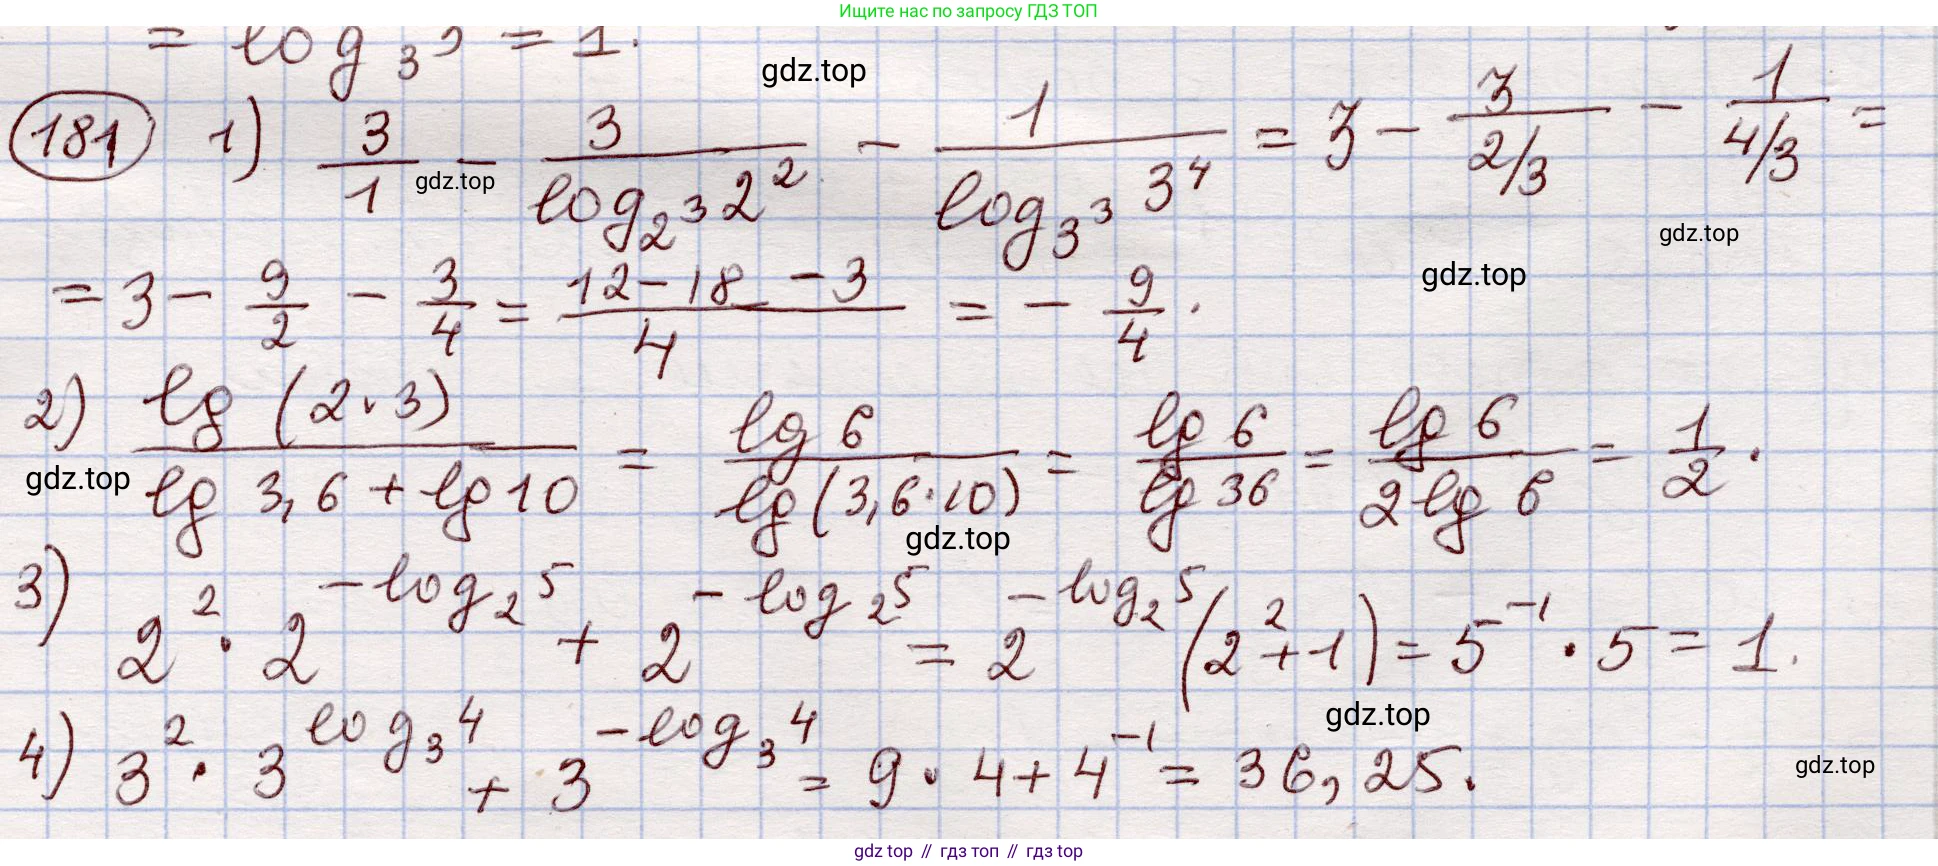 Ищите нас по запросу ГДЗ ТОП
= log₃3 = 1.
gdz.top
181 1) 3/1 - 3/(log_{2^3} 2^2) - 1/(log_{3^3} 3^4) = 3 - 3/(2/3) - 1/(4/3) =
gdz.top
gdz.top
= 3 - 9/2 - 3/4 = (12 - 18 - 3)/4 = - 9/4.
gdz.top
2) lg(2·3)/(lg 3,6 + lg 10) = lg 6/lg(3,6·10) = lg 6/lg 36 = lg 6/(2 lg 6) = 1/2.
gdz.top
gdz.top
3) 2^2 · 2^{-log_2 5} + 2^{-log_2 5} = 2^{-log_2 5} (2^2 + 1) = 5^{-1} · 5 = 1.
gdz.top
4) 3^2 · 3^{log_3 4} + 3^{-log_3 4} = 9 · 4 + 4^{-1} = 36,25.
gdz.top
gdz top // гдз топ // гдз top